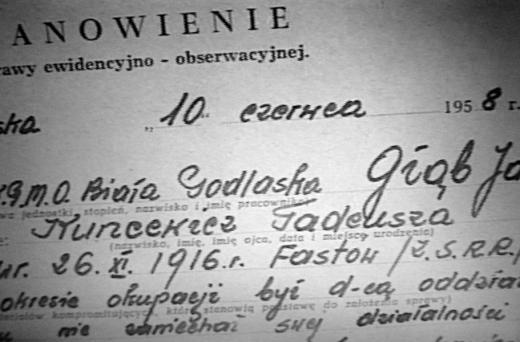 ANOWIENIE
awy ewidencyjno - obserwacyjnej.
ska „10" czerwca 1958 r.
K.G.M.O. Biała Godlaska Głąb Ja
wa jednostki, stopień, nazwisko i imię pracownika
e: Kuncewicz Tadeusza
(nazwisko, imię, imię ojca, data i miejsce urodzenia)
ur. 26. XI. 1916.r. Fastow /Z.S.R.R./
okresie okupacji był d-cą oddział
ciałów kompromitujących, które stanowią podstawę do założenia sprawy)
nie zaniechał swej działalności